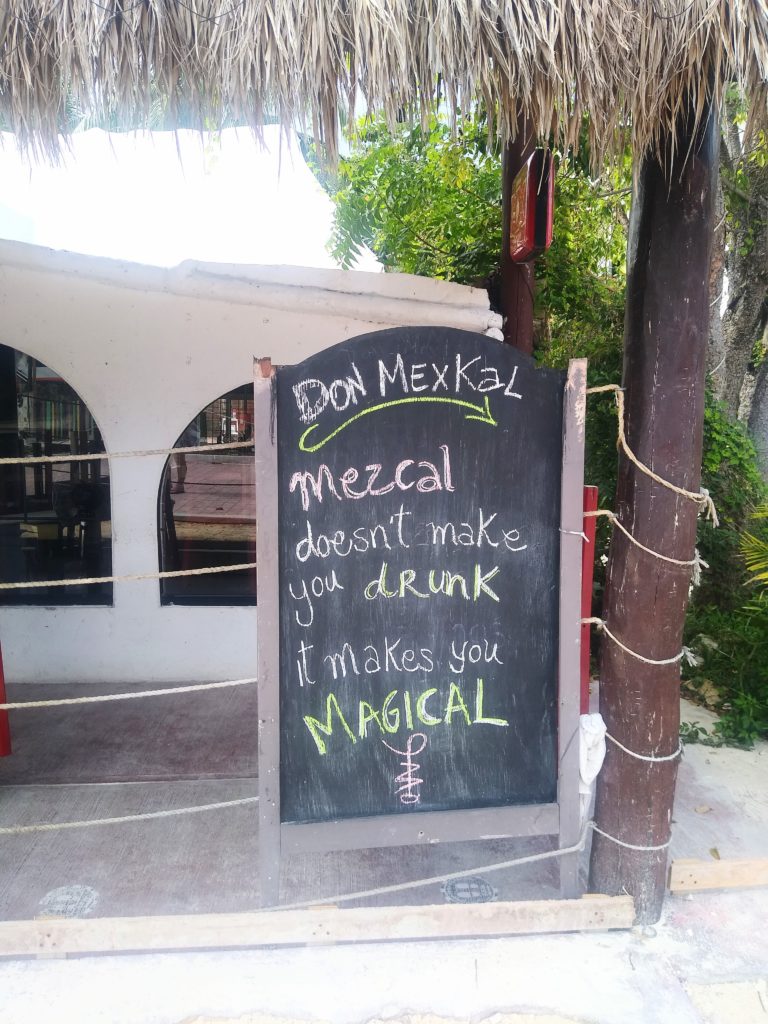 DON MEXKAL
mezcal
doesn't make
you DRUNK
it makes you
MAGICAL